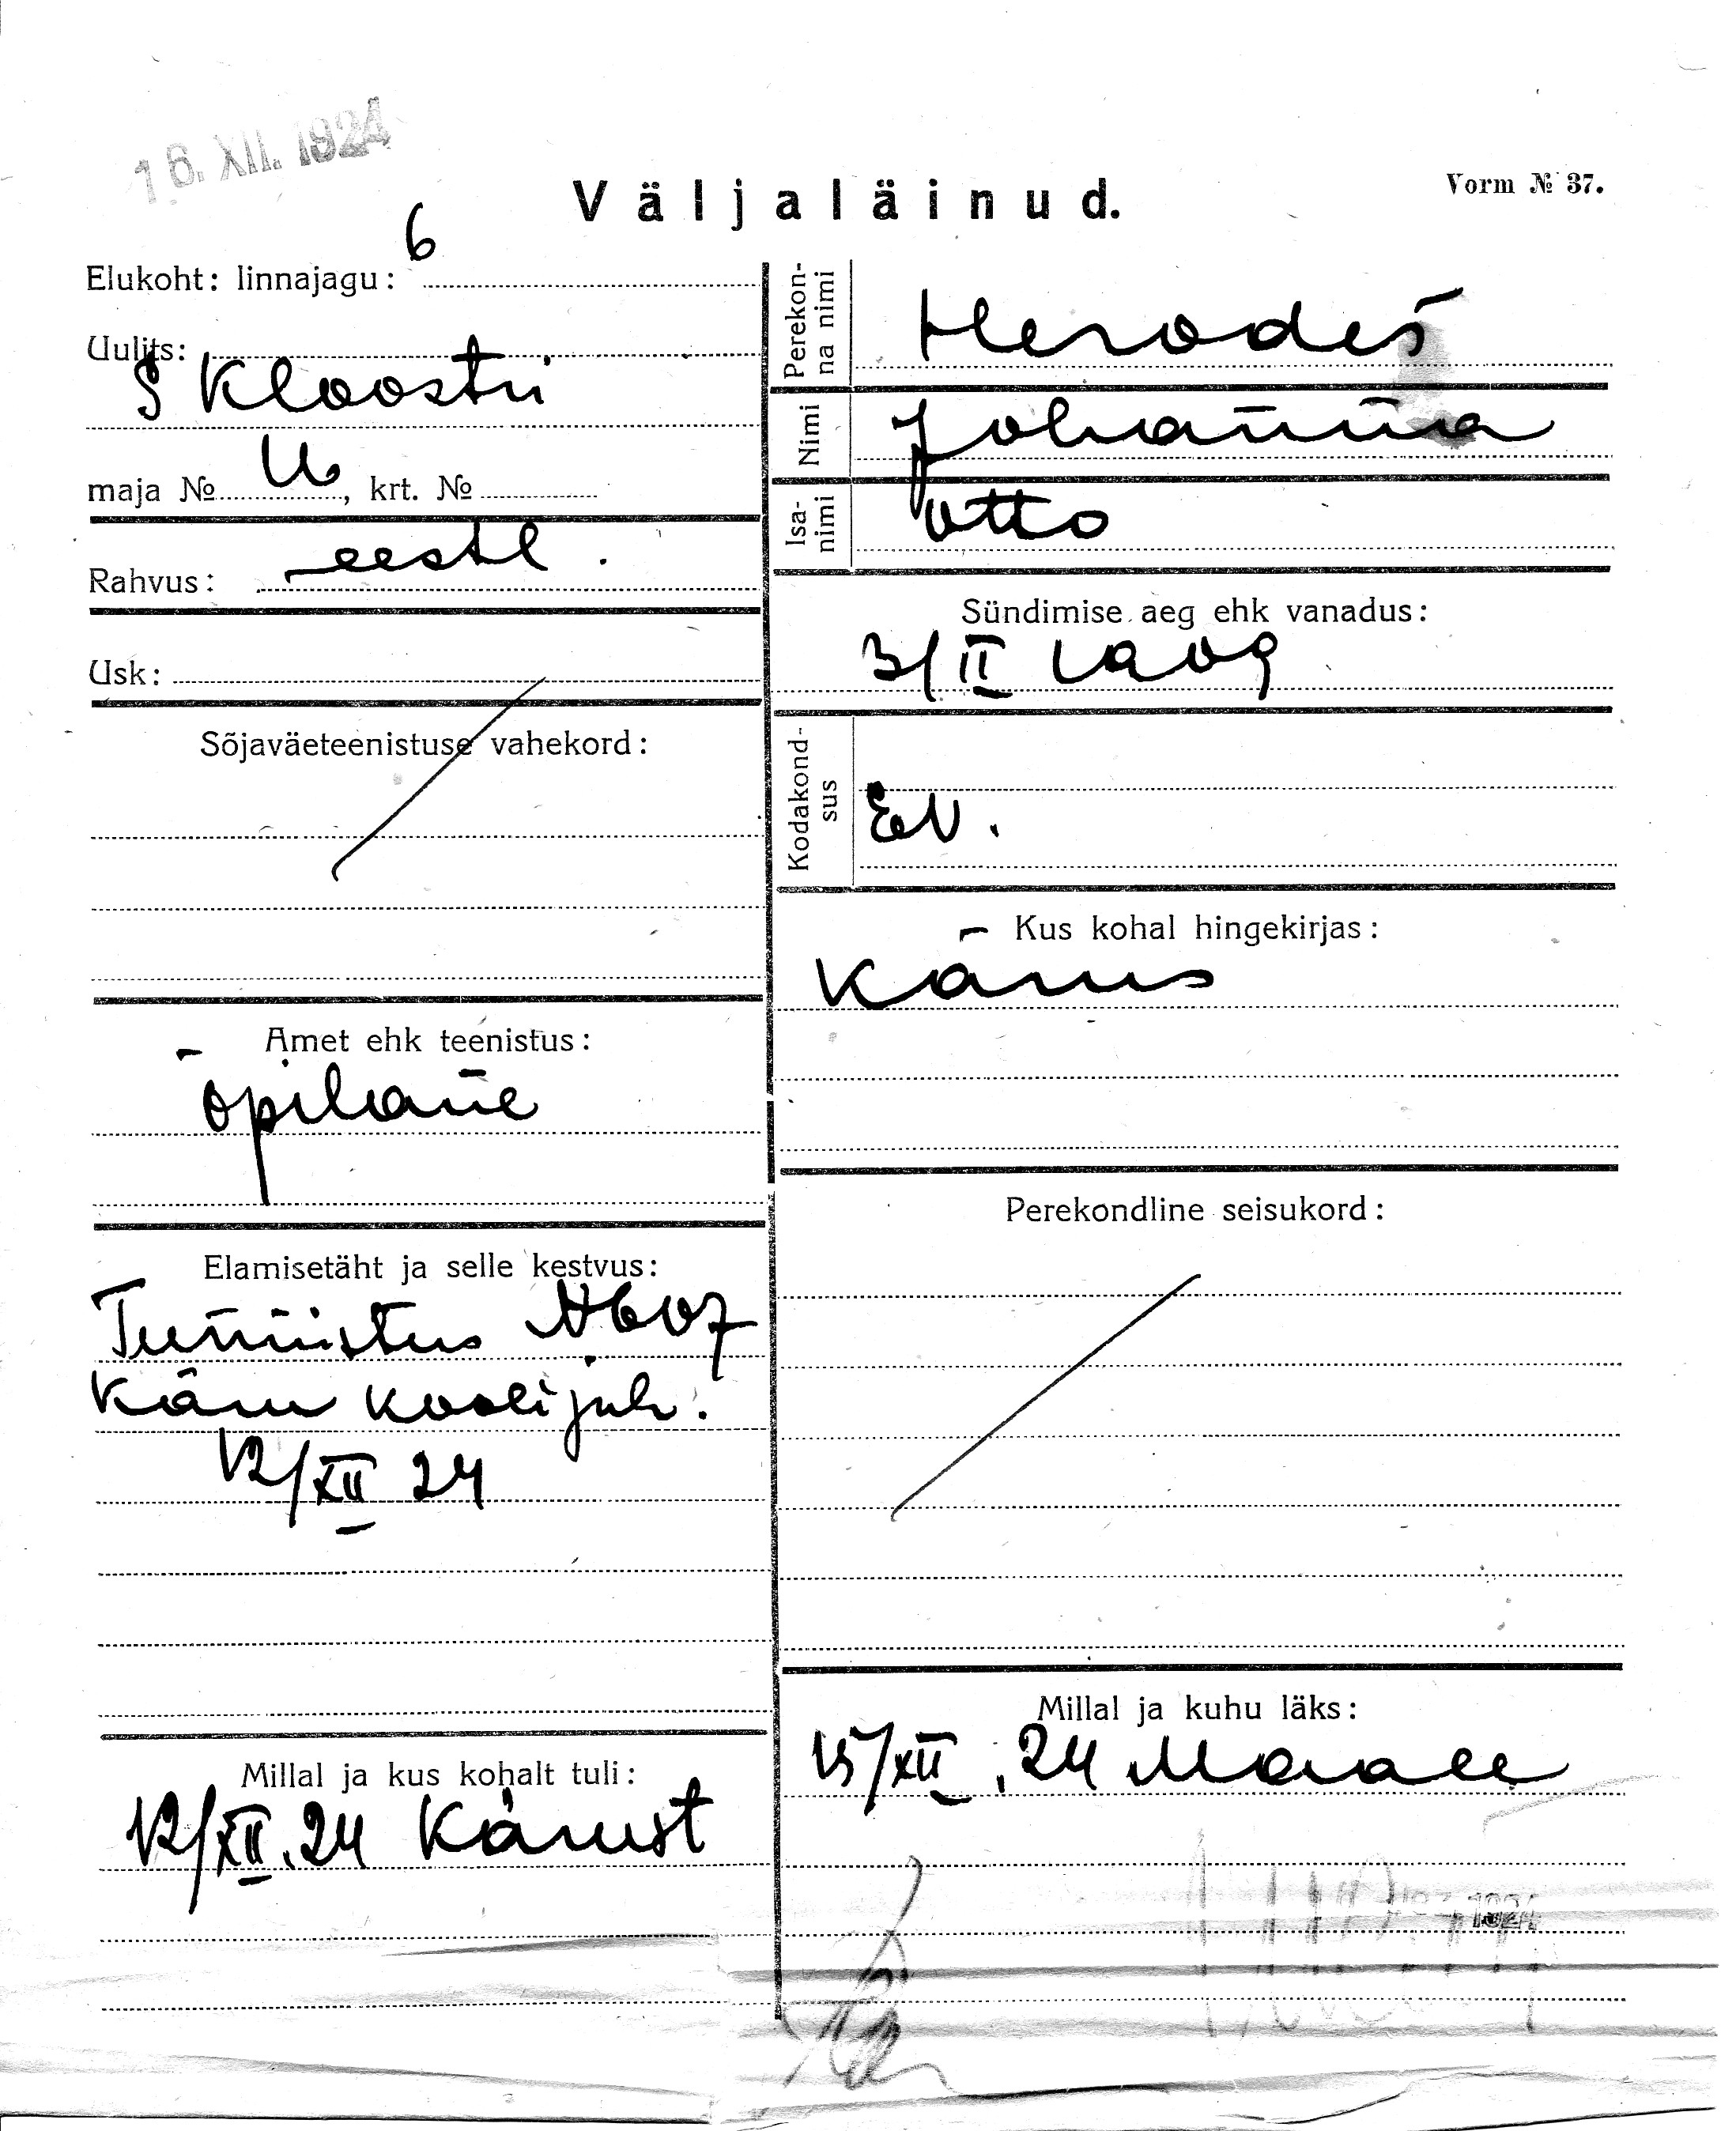 16. XII. 1924
Väljaläinud.
Vorm № 37.
Elukoht: linnajagu: 6
Uulits:
S Kloostri
maja № 16, krt. №
Rahvus: eestl.
Usk:
Sõjaväeteenistuse vahekord:
Amet ehk teenistus:
õpilane
Elamisetäht ja selle kestvus:
Tunnistus № 607
Käru koolijuh.
12/XII 24
Millal ja kus kohalt tuli:
12/XII. 24 Kärust
Perekon-
na nimi
Herodes
Nimi
Johanna
Isa-
nimi
Otto
Sündimise aeg ehk vanadus:
3/II 1909
Kodakond-
sus
EV.
Kus kohal hingekirjas:
Kärus
Perekondline seisukord:
Millal ja kuhu läks:
15/XII. 24 Maale